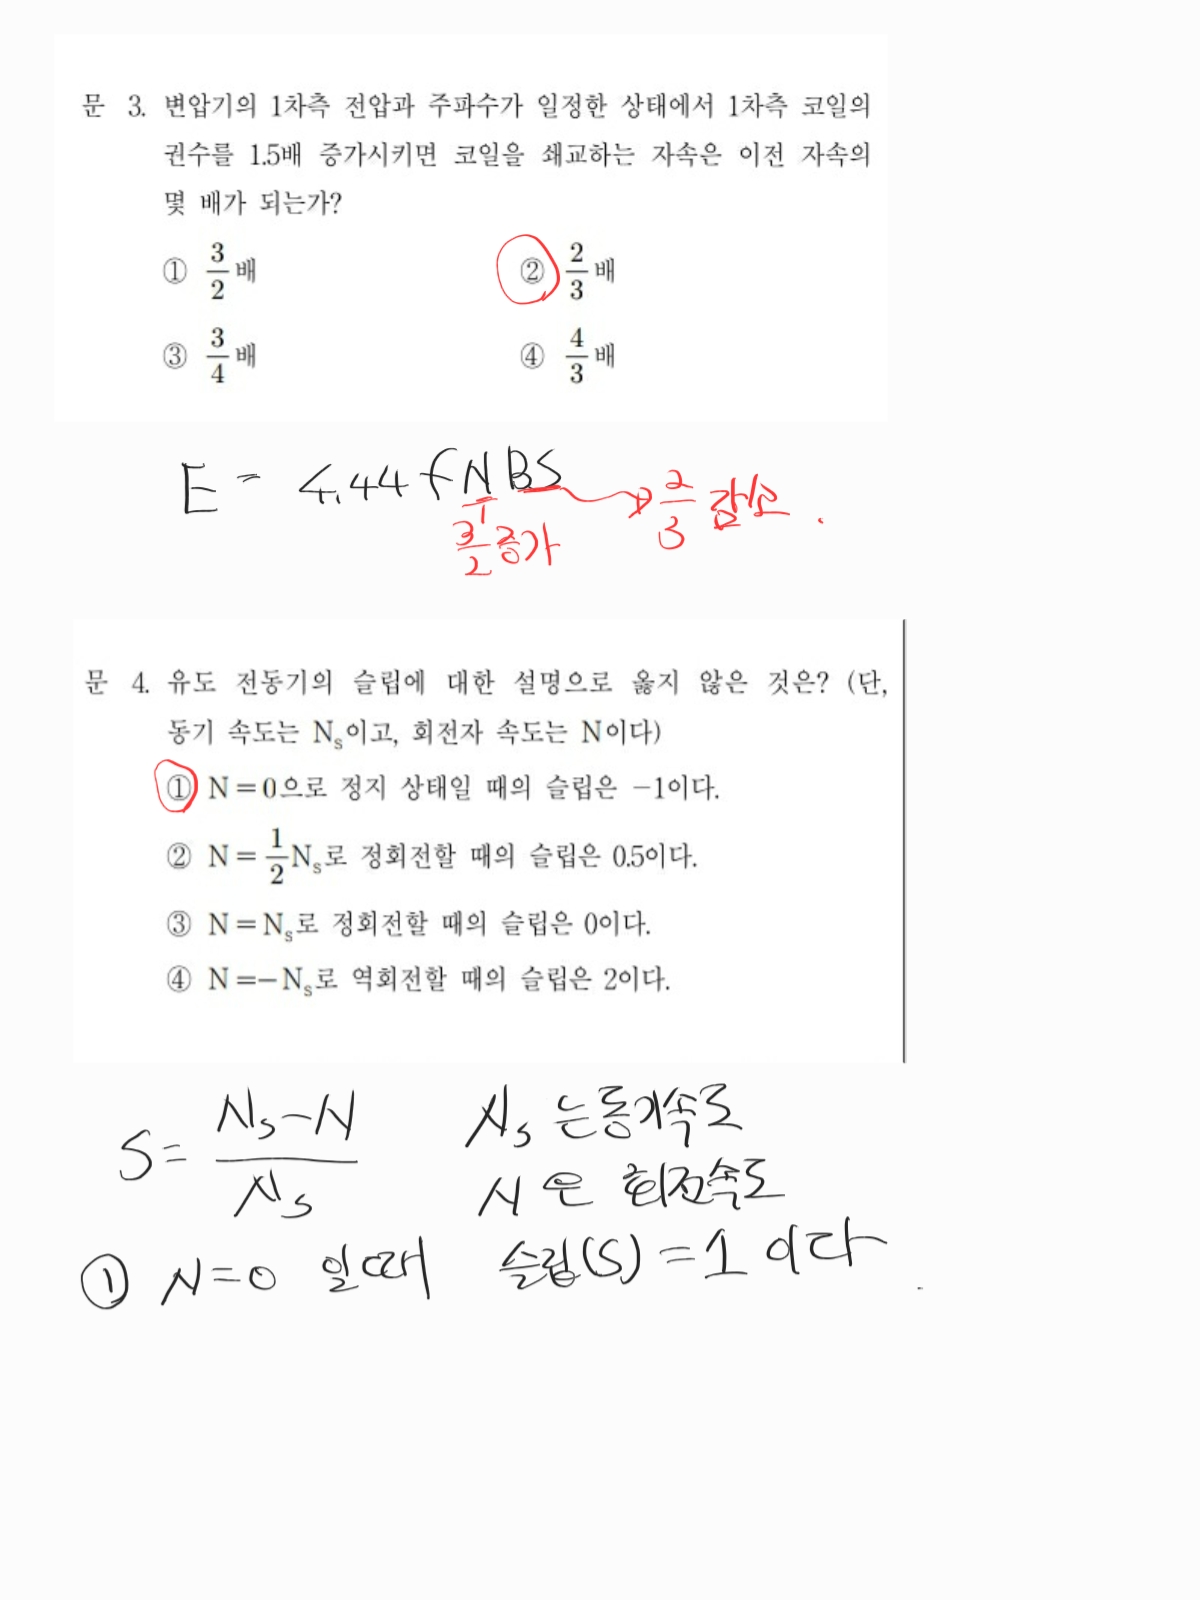 문 3. 변압기의 1차측 전압과 주파수가 일정한 상태에서 1차측 코일의
권수를 1.5배 증가시키면 코일을 쇄교하는 자속은 이전 자속의
몇 배가 되는가?
① 3/2 배 ② 2/3 배
③ 3/4 배 ④ 4/3 배
E = 4.44 f N B S
3/2 증가 → 2/3 감소.
문 4. 유도 전동기의 슬립에 대한 설명으로 옳지 않은 것은? (단,
동기 속도는 Ns이고, 회전자 속도는 N이다)
① N=0으로 정지 상태일 때의 슬립은 −1이다.
② N=1/2Ns로 정회전할 때의 슬립은 0.5이다.
③ N=Ns로 정회전할 때의 슬립은 0이다.
④ N=−Ns로 역회전할 때의 슬립은 2이다.
S = (Ns−N)/Ns Ns 는 동기속도
N 은 회전속도
① N=0 일때 슬립(S) = 1 이다.